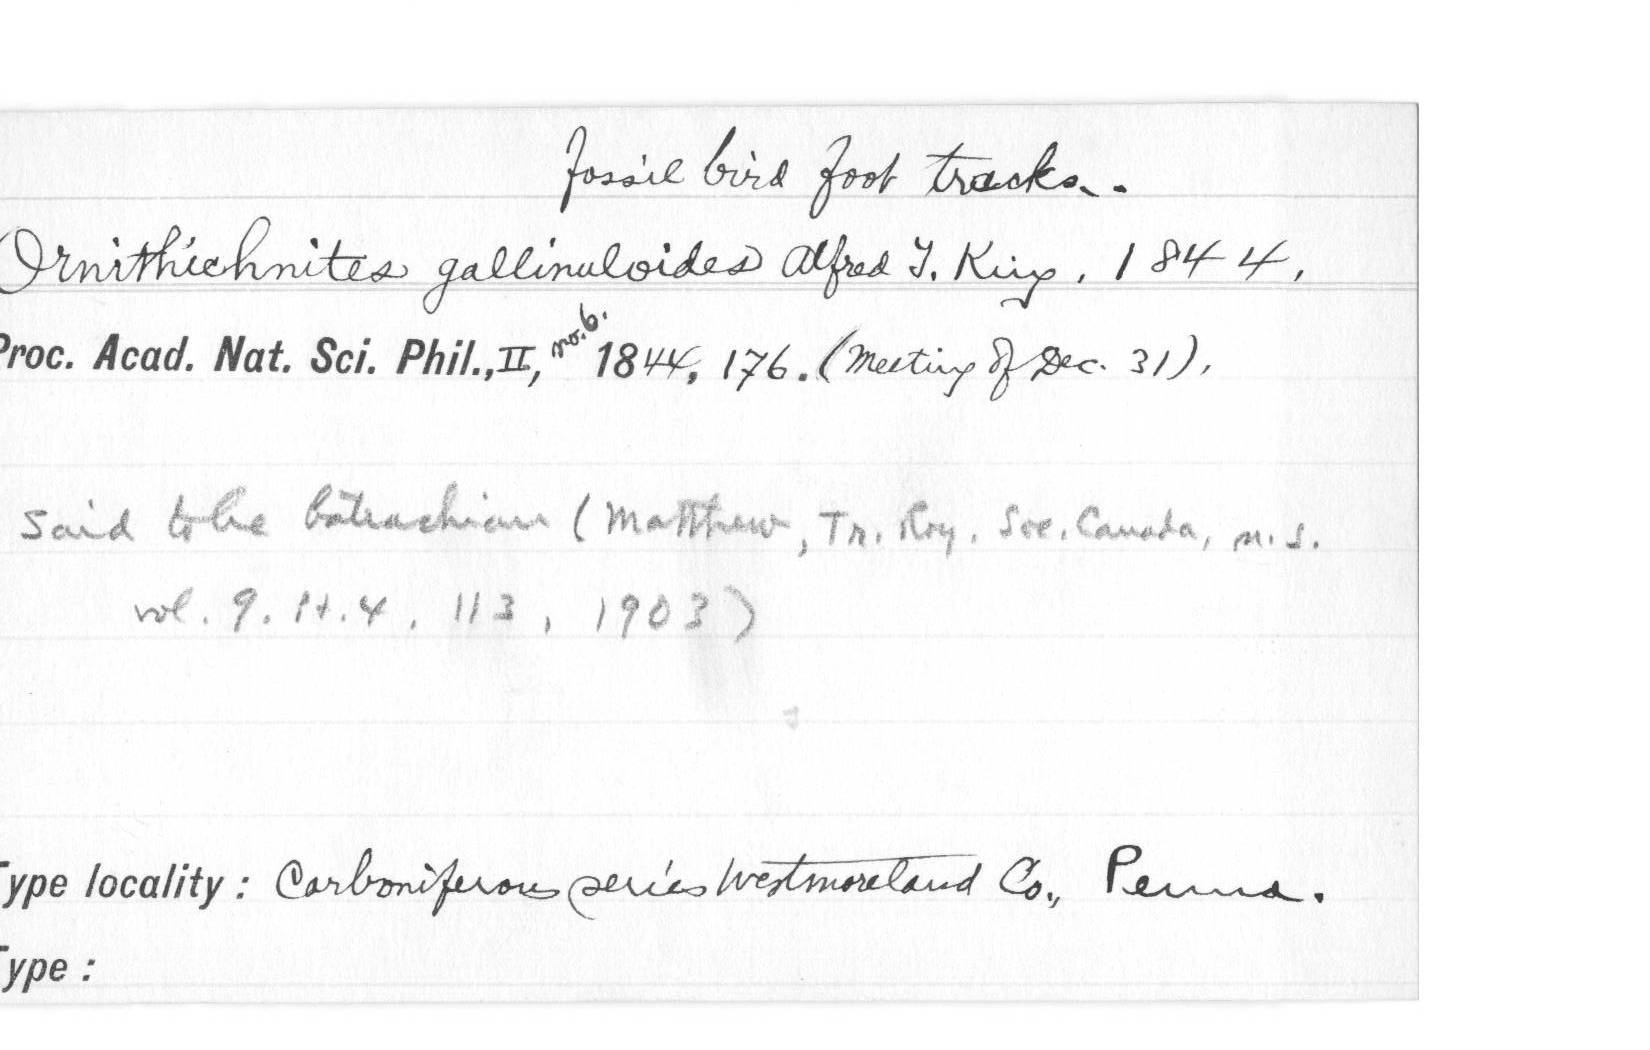 fossil bird foot tracks.
Ornithichnites gallinuloides Alfred T. King, 1844,
Proc. Acad. Nat. Sci. Phil., II, no. 6. 1844, 176. (Meeting of Dec. 31).
Said to be batrachian (Matthew, Tr. Roy. Soc. Canada, n.s.
vol. 9. pt. 4, 113, 1903)
Type locality: Carboniferous series Westmoreland Co., Penna.
Type: